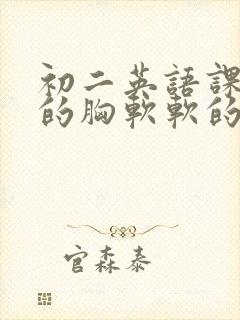 初二英語課
的胸軟軟的
官森泰